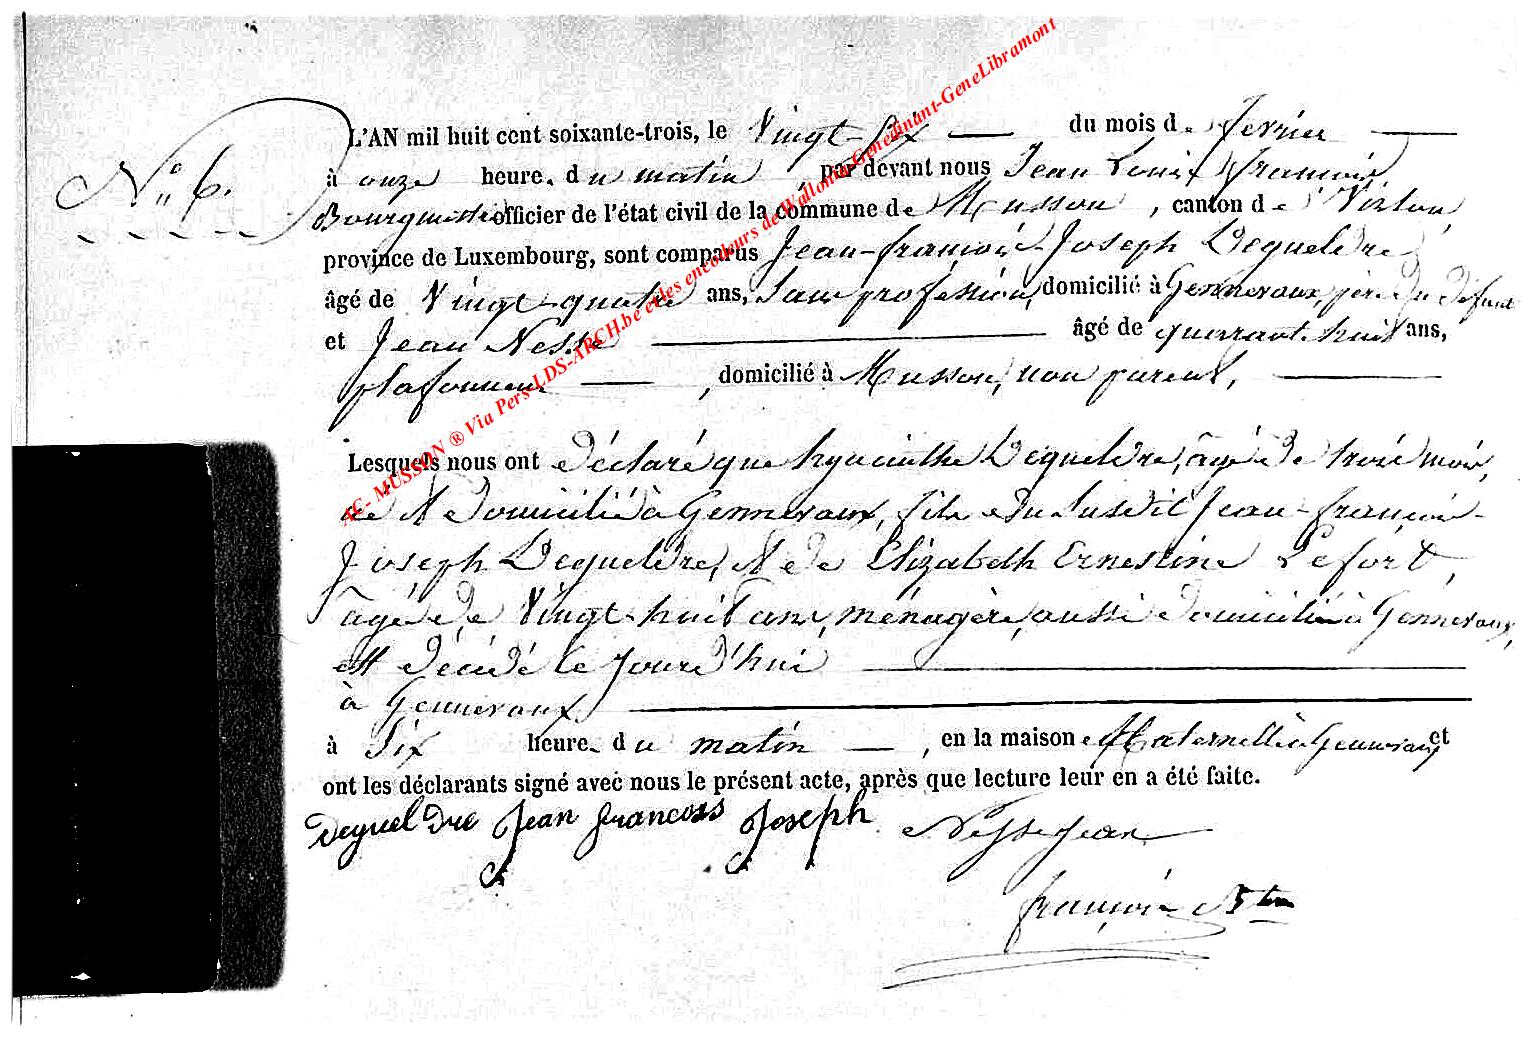 N° 6.
L'AN mil huit cent soixante-trois, le Vingt-six du mois de fevrier
à onze heure. du matin par devant nous Jean Louis françois
Bourgmestre officier de l'état civil de la commune de Musson, canton de Virton,
province de Luxembourg, sont comparus Jean-françois-Joseph Dequeldre
âgé de Vingt-quatre ans, sans profession, domicilié à Gennevaux, père du défunt
et Jean Nesse âgé de quarrant-huit ans,
plafonneur, domicilié à Musson, non parent,
Lesquels nous ont déclaré que hyacinthe Dequeldre, âgé de trois mois,
né et domicilié à Gennevaux, fils du susdit Jean-françois-
Joseph Dequeldre, et de Elizabeth Ernestine Lefort,
âgé de Vingt-huit ans, ménagère, aussi domicilié à Gennevaux,
est décédé le jourd'hui
à Gennevaux
à six heure. du matin, en la maison Maternelle à Gennevaux et
ont les déclarants signé avec nous le présent acte, après que lecture leur en a été faite.
Dequeldre Jean francois Joseph Nesse Jean
françois
AC- MUSSON ® Via Pers-LDS-ARCH.be et les encodeurs de Wallonie-GeneDinant-GeneLibramont